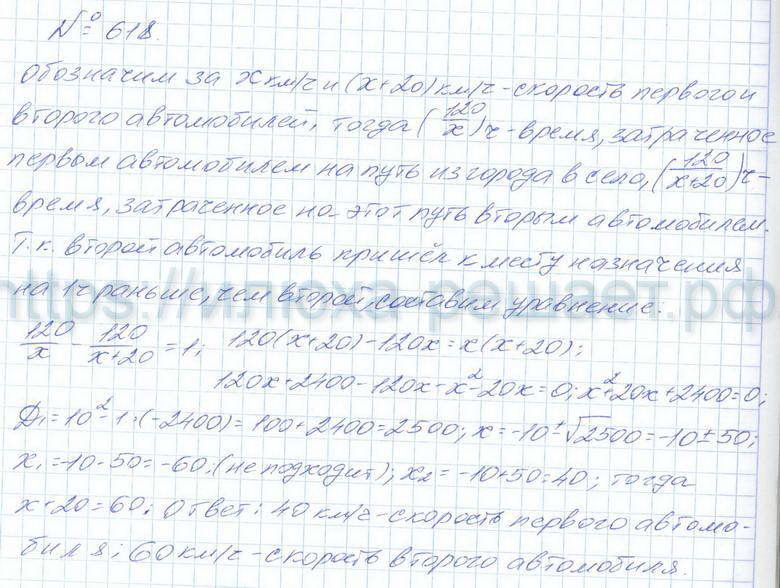 № 618.
Обозначим за x км/ч и (x+20) км/ч - скорость первого и
второго автомобилей, тогда (120/x) ч - время, затраченное
первым автомобилем на путь из города в село, (120/(x+20)) ч -
время, затраченное на этот путь вторым автомобилем.
Т.к. второй автомобиль пришёл к месту назначения
на 1ч раньше, чем второй, составим уравнение:
https://илюха-решает.рф
120/x - 120/(x+20) = 1; 120(x+20) - 120x = x(x+20);
120x + 2400 - 120x - x² - 20x = 0; x² + 20x + 2400 = 0;
Д₁ = 10² - 1·(-2400) = 100 + 2400 = 2500; x = -10 ± √2500 = -10 ± 50;
x₁ = -10 - 50 = -60 (не подходит); x₂ = -10 + 50 = 40; тогда
x + 20 = 60; Ответ: 40 км/ч - скорость первого автомо-
биля; 60 км/ч - скорость второго автомобиля.